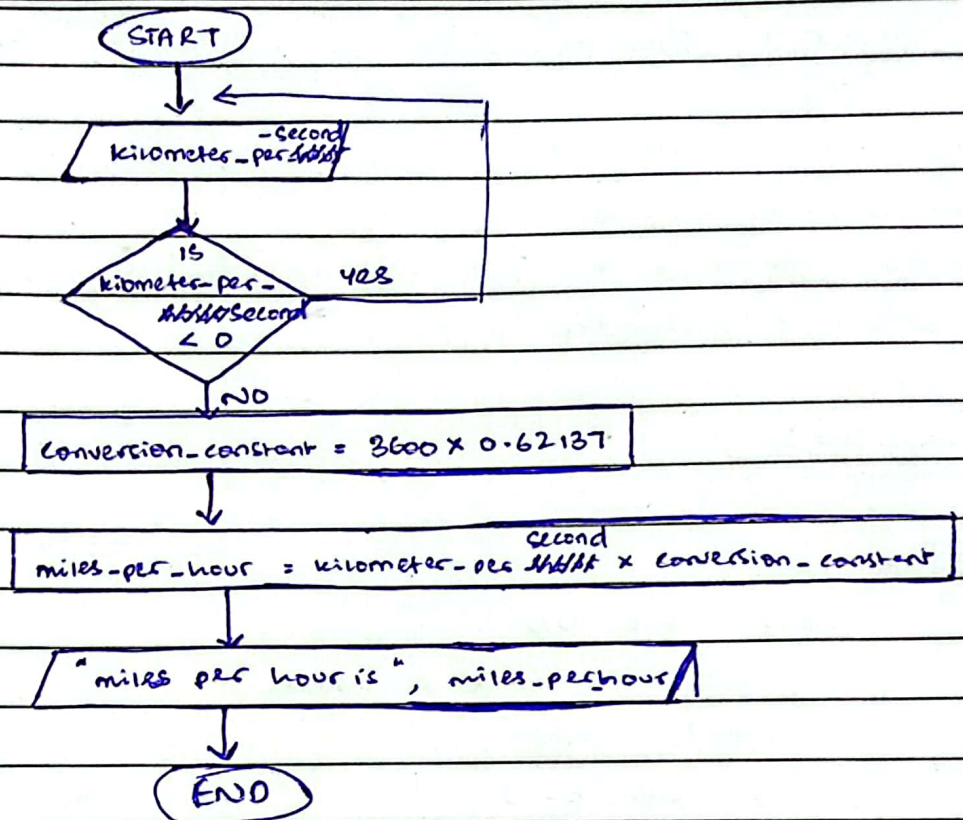 START
-second
kilometer_per
is
kilometer-per-
second
< 0
yes
NO
conversion_constant = 3600 × 0.62137
second
miles-per_hour = kilometer-per × conversion_constant
"miles per hour is", miles_per_hour
END